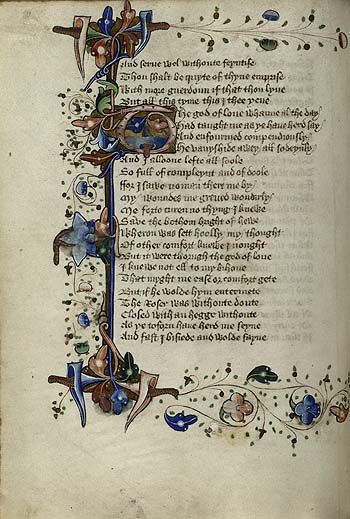 And serve wel withoute feyntise
Thou shalt be quyte of thyne emprise
With more guerdoun if that thou lyve
But all this tyme this I thee yeve
The god of love whanne al the day
Had taught me as ye have herd say
And enfourmed compendiously
He vanyshide awey all sodeynly
And I alloone lefte all soole
So full of compleynt and of doole
For I sawe no man there me by
My woundes me greved wonderly
Me forto curen no thyng I knewe
Save the bothom bright of hewe
Wheron was sett hoolly my thought
Of other comfort knewe I nought
But it were thorugh the god of love
I knewe not ell to my bihove
That myght me ease or comfort gete
But if he wolde hym entermete
The Roser was withoute doute
Closed with an hegge withoute
As ye toforn have herd me seyne
And fast I bisiede and wolde fayne